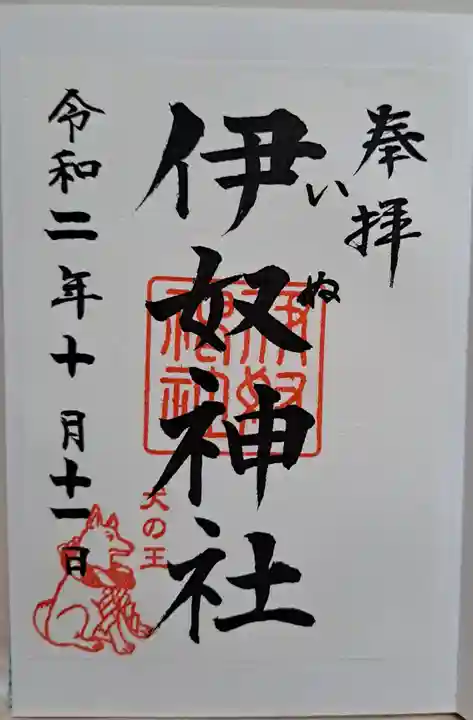 奉拝
伊奴神社
いぬ
伊奴神社
犬の王
令和二年十月十一日